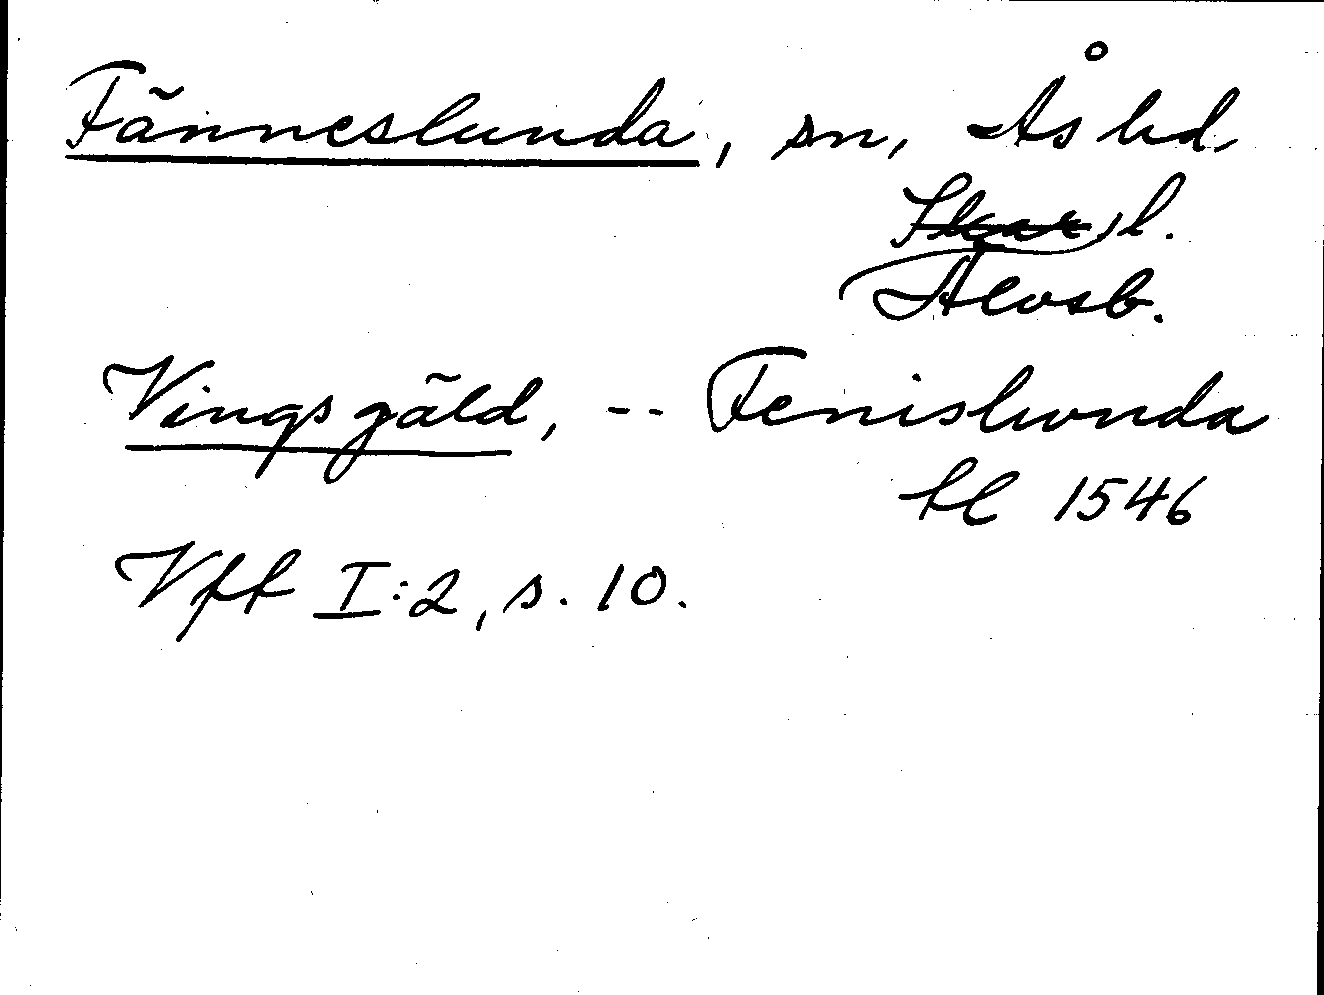 Fänneslunda, sn, Ås hd.
Skar l.
Älvsb.
Vingsgäld, -- Fenislunda
hl 1546
Vff I:2, s. 10.